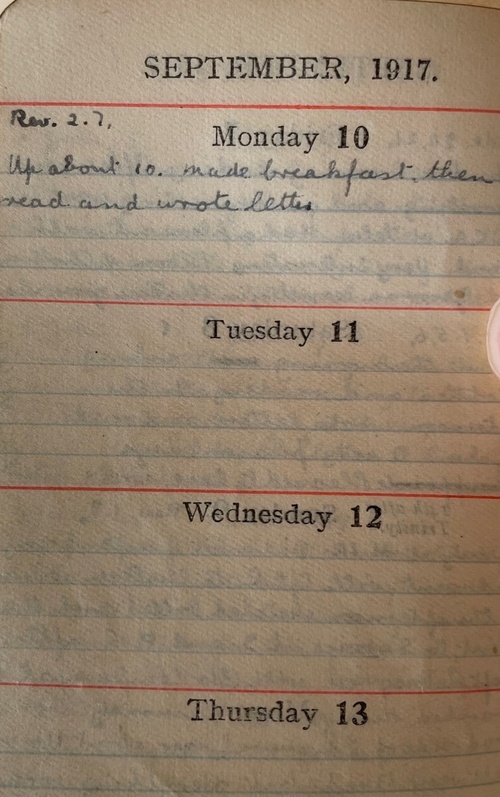 SEPTEMBER, 1917.
Rev. 2.7.
Monday 10
Up about 10. made breakfast. then
read and wrote letter
Tuesday 11
Wednesday 12
Thursday 13